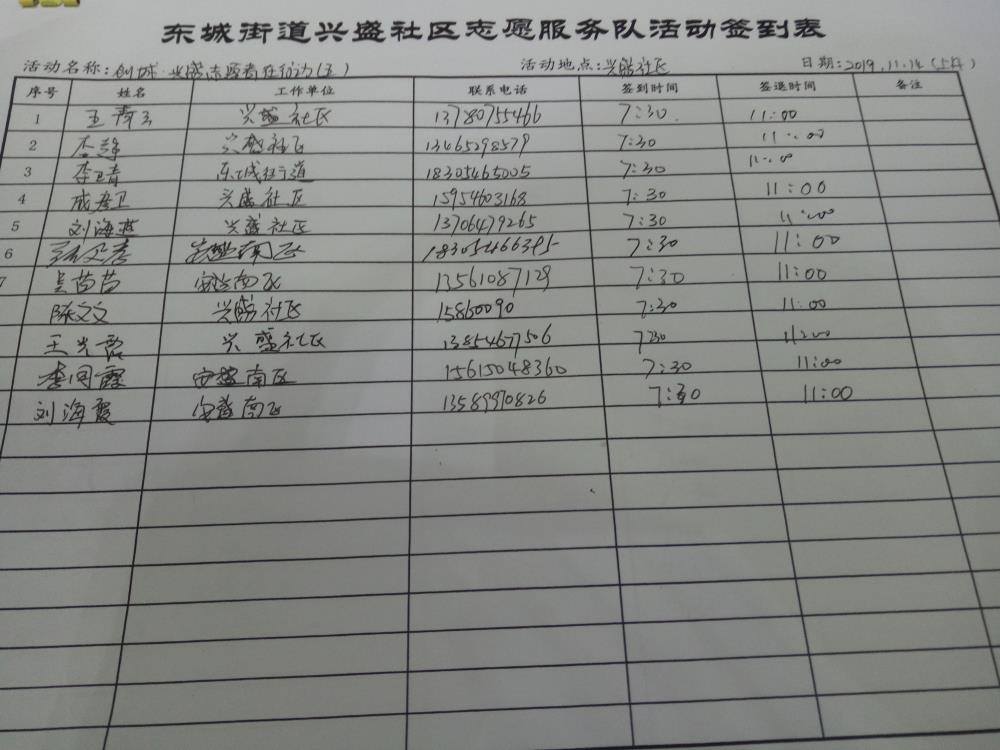 东城街道兴盛社区志愿服务队活动签到表
活动名称：创城·兴盛志愿者在行动(五) 活动地点：兴盛社区 日期：2019.11.14(上午)
序号 姓名 工作单位 联系电话 签到时间 签退时间 备注
1 王 兴盛社区 13780755466 7:30 11:00
2 李 兴盛社区 13465298579 7:30 11:00
3 李卫青 东城街道 18305465005 7:30 11:00
4 成卫 兴盛社区 15954603168 7:30 11:00
5 刘海燕 兴盛社区 13706479265 7:30 11:00
6 南区 18305466395 7:30 11:00
7 吴苗苗 安兴南区 13561087129 7:30 11:00
陈文文 兴盛社区 15860090 7:30 11:00
王兴霞 兴盛社区 13854677506 7:30 11:00
李同霞 安兴南区 15615048360 7:30 11:00
刘海霞 南区 13589990826 7:30 11:00